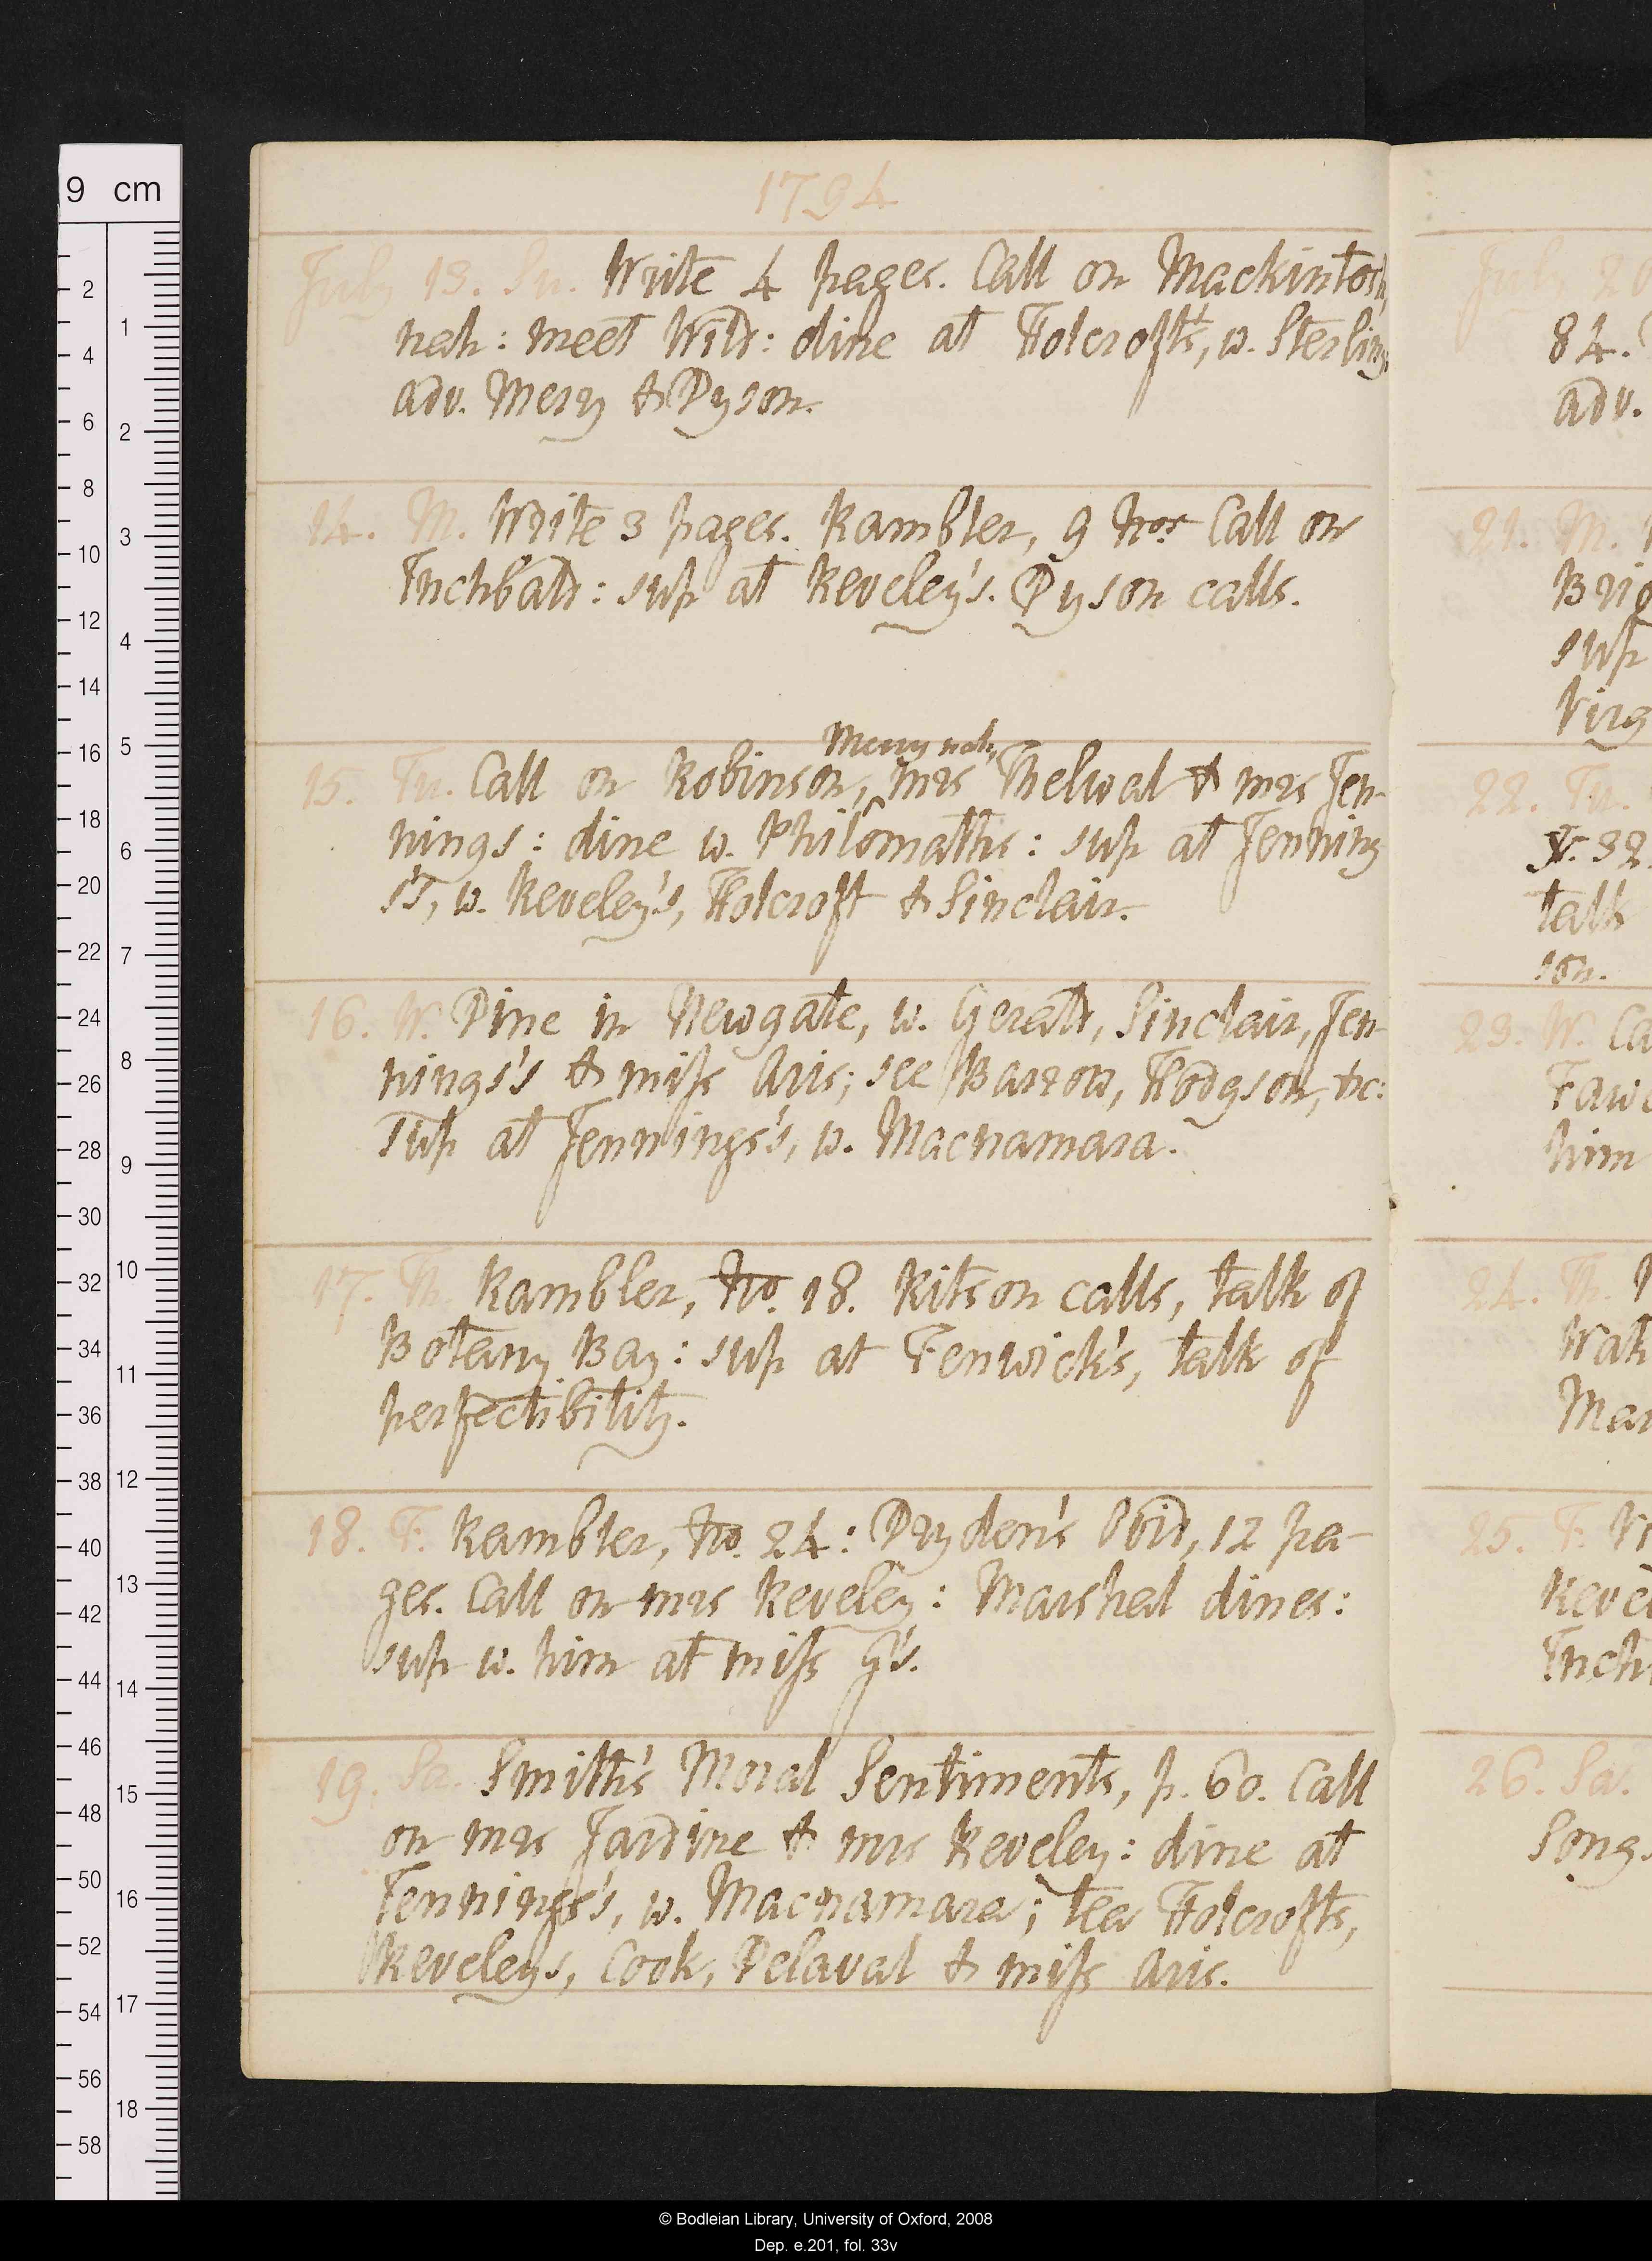 9 cm
1794
July 13. Su. Write 4 pages. Call on Mackintosh,
nah: meet Wild: dine at Holcroft's, w. Sterling,
adv. Merry & Dyson.
14. M. Write 3 pages. Rambler, 9 Nos. Call on
Inchbald: sup at Reveley's. Dyson calls.
Merry nah,
15. Tu. Call on Robinson, ^ mrs Thelwal & mrs Jen-
nings: dine w. Philomaths: sup at Jenning
s's, w. Reveley's, Holcroft & Sinclair.
16. W. Dine in Newgate, w. Gerald, Sinclair, Jen-
nings's & miss Aris; see Barrow, Hodgson, &c:
Sup at Jennings's, w. Macnamara.
17. Th. Rambler, No. 18. Ritson calls, talk of
Botany Bay: sup at Fenwick's, talk of
perfectibility.
18. F. Rambler, No. 24: Dryden's Ovid, 12 pa-
ges. Call on mrs Reveley: Marshal dines:
sup w. him at miss G's.
19. Sa. Smith's Moral Sentiments, p. 60. Call
on mrs Jardine & mrs Reveley: dine at
Jennings's, w. Macnamara; tea Holcrofts,
Reveleys, Cook, Delaval & miss Aris.
July 20
84.
adv.
21. M.
Brig
sup
Virg
22. Tu.
32.
talk
son.
23. W. Ca
Fawc
him
24. Th.
Wat
Mar
25. F. Vi
Revel
Inch
26. Sa.
Songs
© Bodleian Library, University of Oxford, 2008
Dep. e.201, fol. 33v